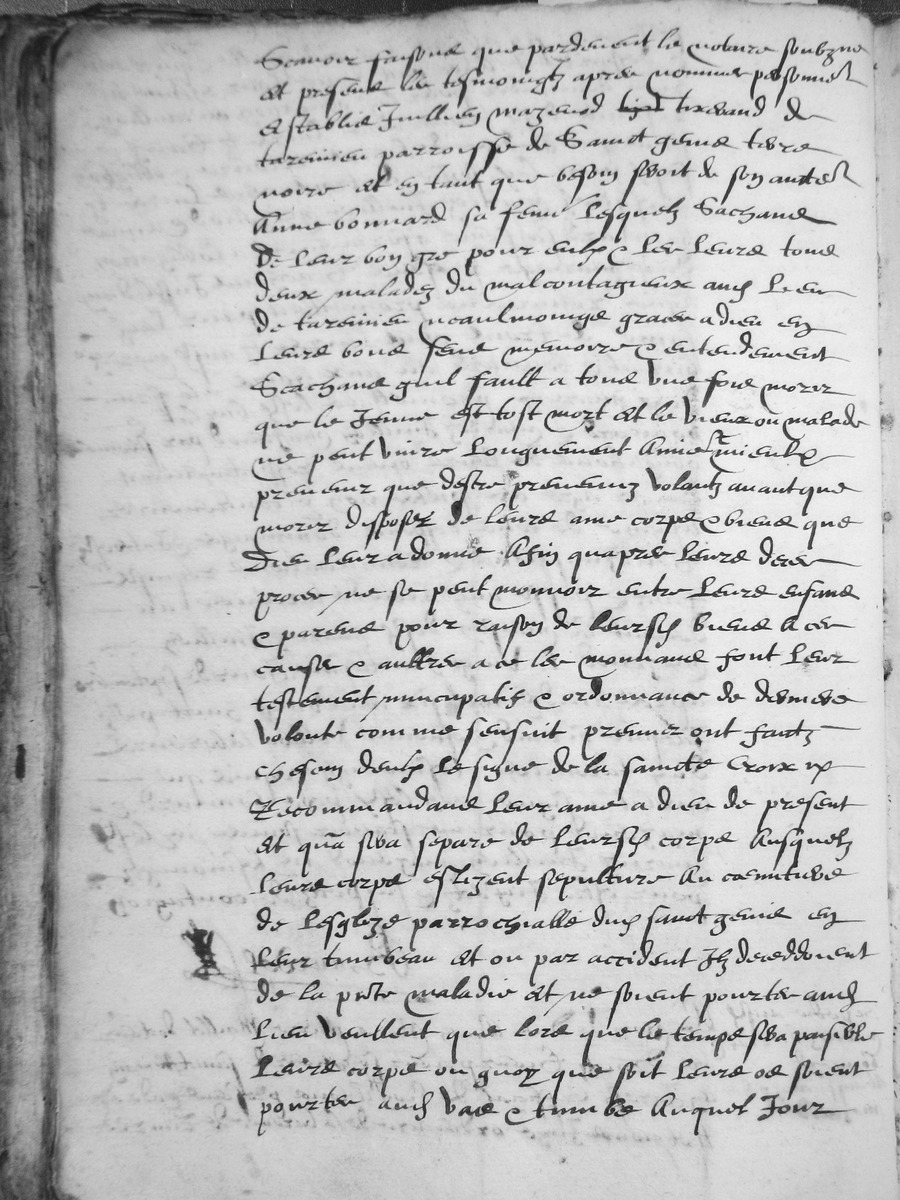 Scavoir faisons que pardevent le notaire soubzne
et presens les tesmoingtz apres nommes personnel
establis Jullien mazenod tixerand de
tarenieu parroisse de Sainct genis terre
noire et en tant que besoin seroit de son aucte
Anne bonnard sa feme Lesquelz Sachans
de leur bon gre pour eulx & les leurs tous
deux malades du mal contagieux aud Lieu
de tarenieu neaulmoings graces a dieu en
Leurs bons sens memoire & entendement
Scachans quil fault a tous une fois morir
que le Jeune est tost mort et le vieux ou malade
ne peut vivre longuement Aimer mieulx
prevenir que destre prevenuz volantz avant que
morir disposer de leurs ame corps & biens que
Dieu leur a donne Afin quapres leurs deces
proces ne se peut mouvoir entre leurs enfans
& parens pour raison de leursd biens A ces
causes & aultres a ce les mouvans font leur
testement nuncupatif & ordonnance de derniere
volonte comme sensuit premier ont faict
chescun deulx le signe de la saincte Croix
Recommandans leur ame a dieu de present
et qua sera separe de leursd corps Ausquelz
leurs corps eslizent sepulture Au cemitiere
de lesglize parrochialle dud sainct genis en
leur tumbeau et ou par accident Ilz deceddoient
de la pnte maladie et ne soient pourtes aud
lieu veullent que lors que le temps sera paisible
leurs corps ou quoy que soit leurs os soient
pourtes aud vas & tumbe Auquel Jour